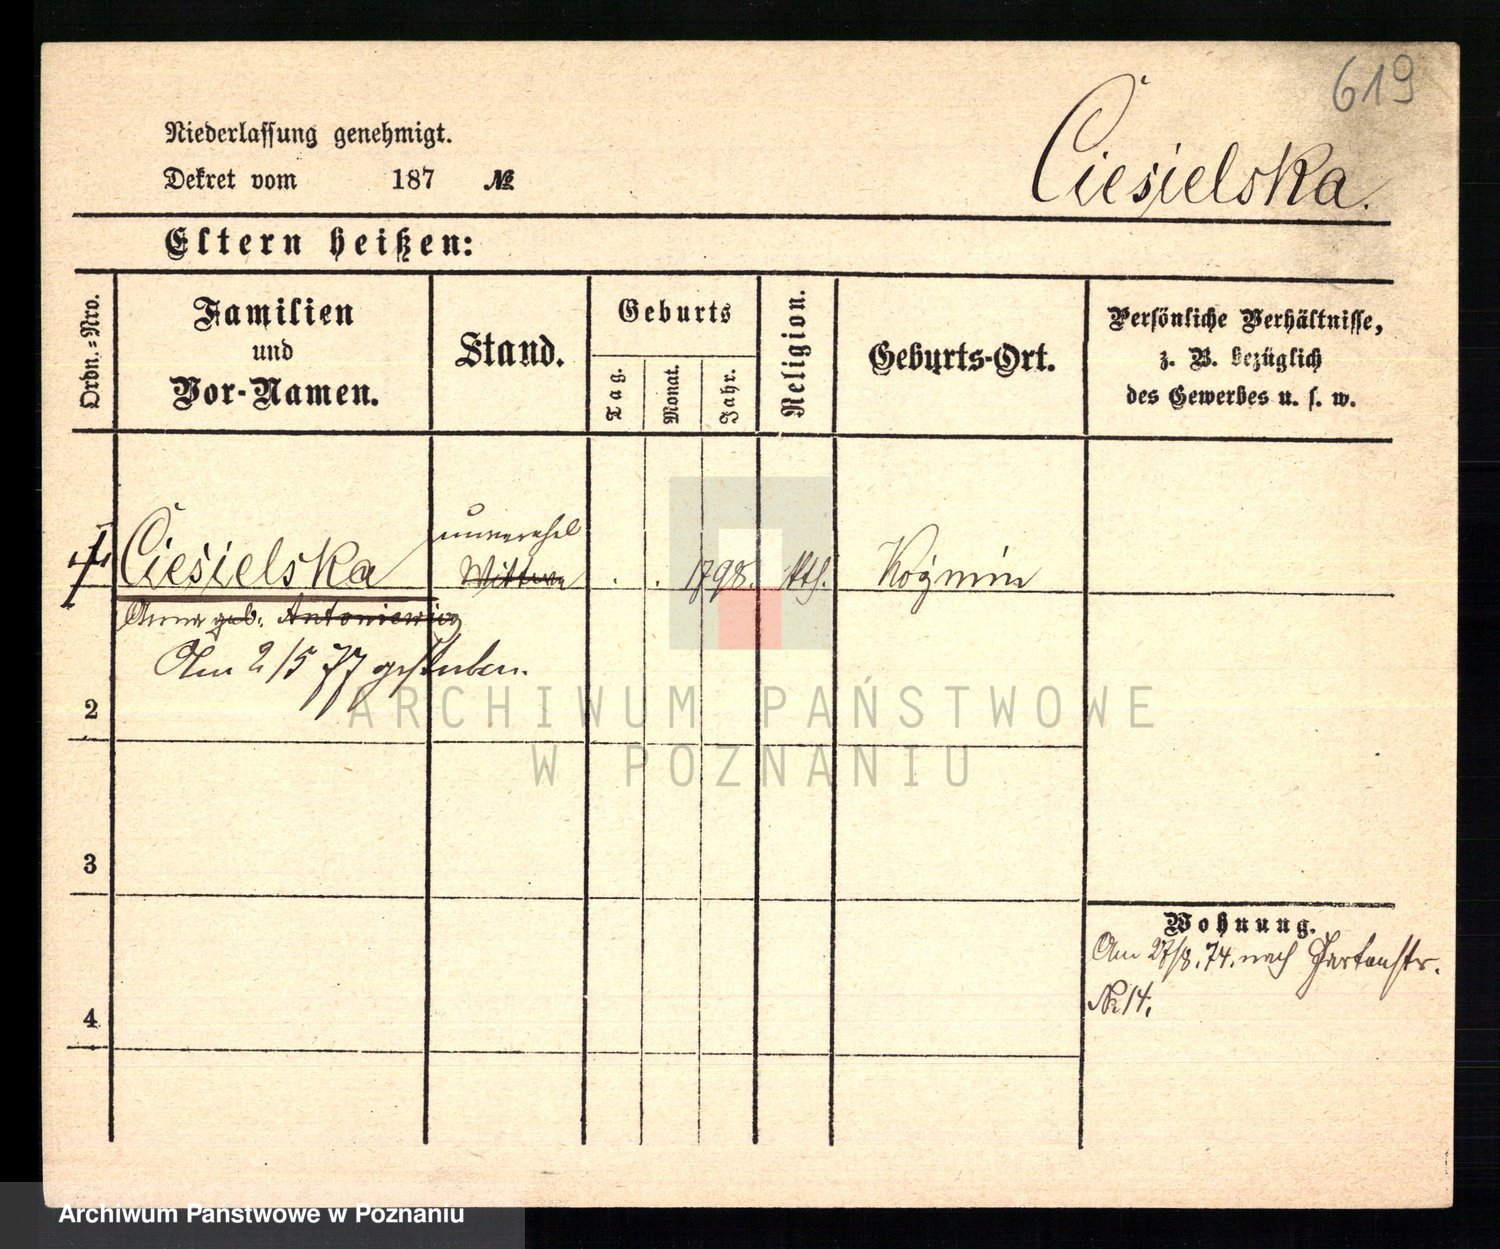 619
Ciesielska.
Niederlassung genehmigt.
Dekret vom 187 №
Eltern heißen:
Ordn.=Nro.
Familien
und
Vor-Namen.
Stand.
Geburts
Tag.
Monat.
Jahr.
Religion.
Geburts-Ort.
Persönliche Verhältnisse,
z. B. bezüglich
des Gewerbes u. s. w.
unverehel
Ciesielska Wittwe . . 1798. kth. Kozmin
Anna geb. Antoniewicz
Am 2/5 77 gestorben.
2
3
4
Wohnung.
Am 27/8. 74. nach Gartenstr.
№ 14.
ARCHIWUM PAŃSTWOWE
W POZNANIU
Archiwum Państwowe w Poznaniu